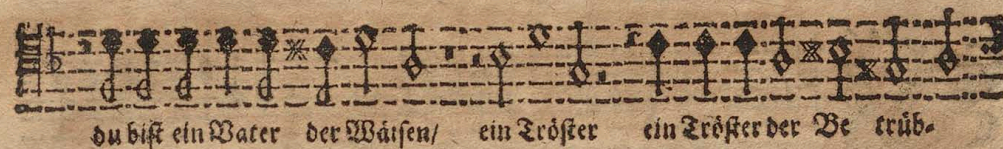 du bist ein Vater der Wäisen/ ein Tröster ein Tröster der Be trüb-